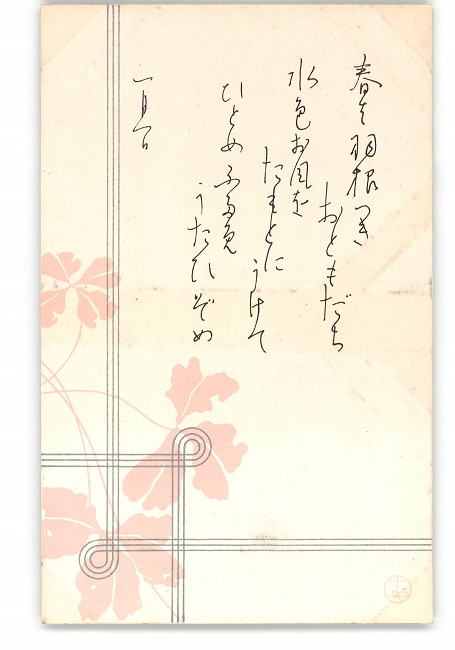 春は羽根つき
おともだち
水色お風を
たもとに
うけて
ひとめふため
うたひぞめ
一月一日